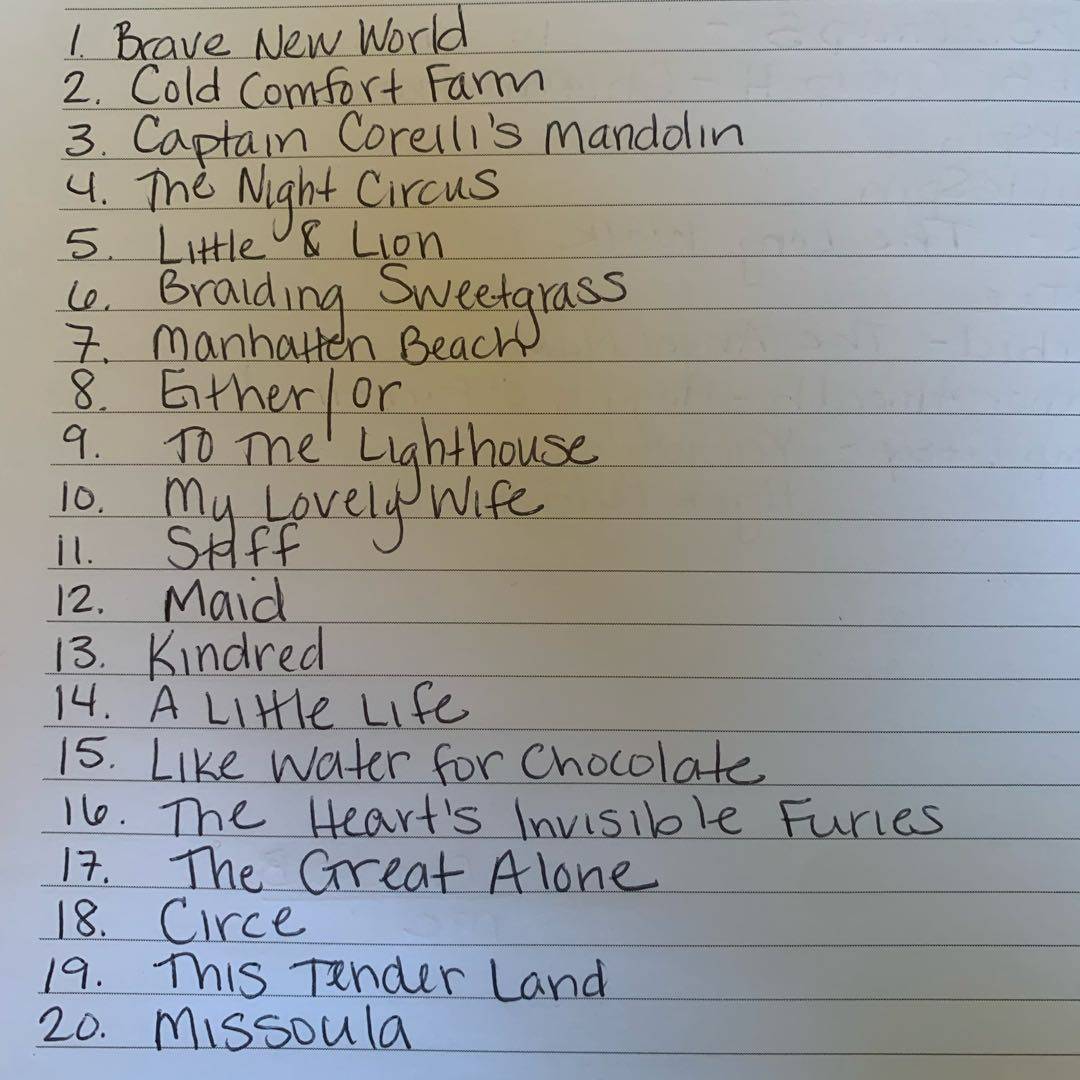 1. Brave New World
2. Cold Comfort Farm
3. Captain Corelli's Mandolin
4. The Night Circus
5. Little & Lion
6. Braiding Sweetgrass
7. Manhatten Beach
8. Either/or
9. To The Lighthouse
10. My Lovely Wife
11. Stiff
12. Maid
13. Kindred
14. A Little Life
15. Like Water for Chocolate
16. The Heart's Invisible Furies
17. The Great Alone
18. Circe
19. This Tender Land
20. Missoula